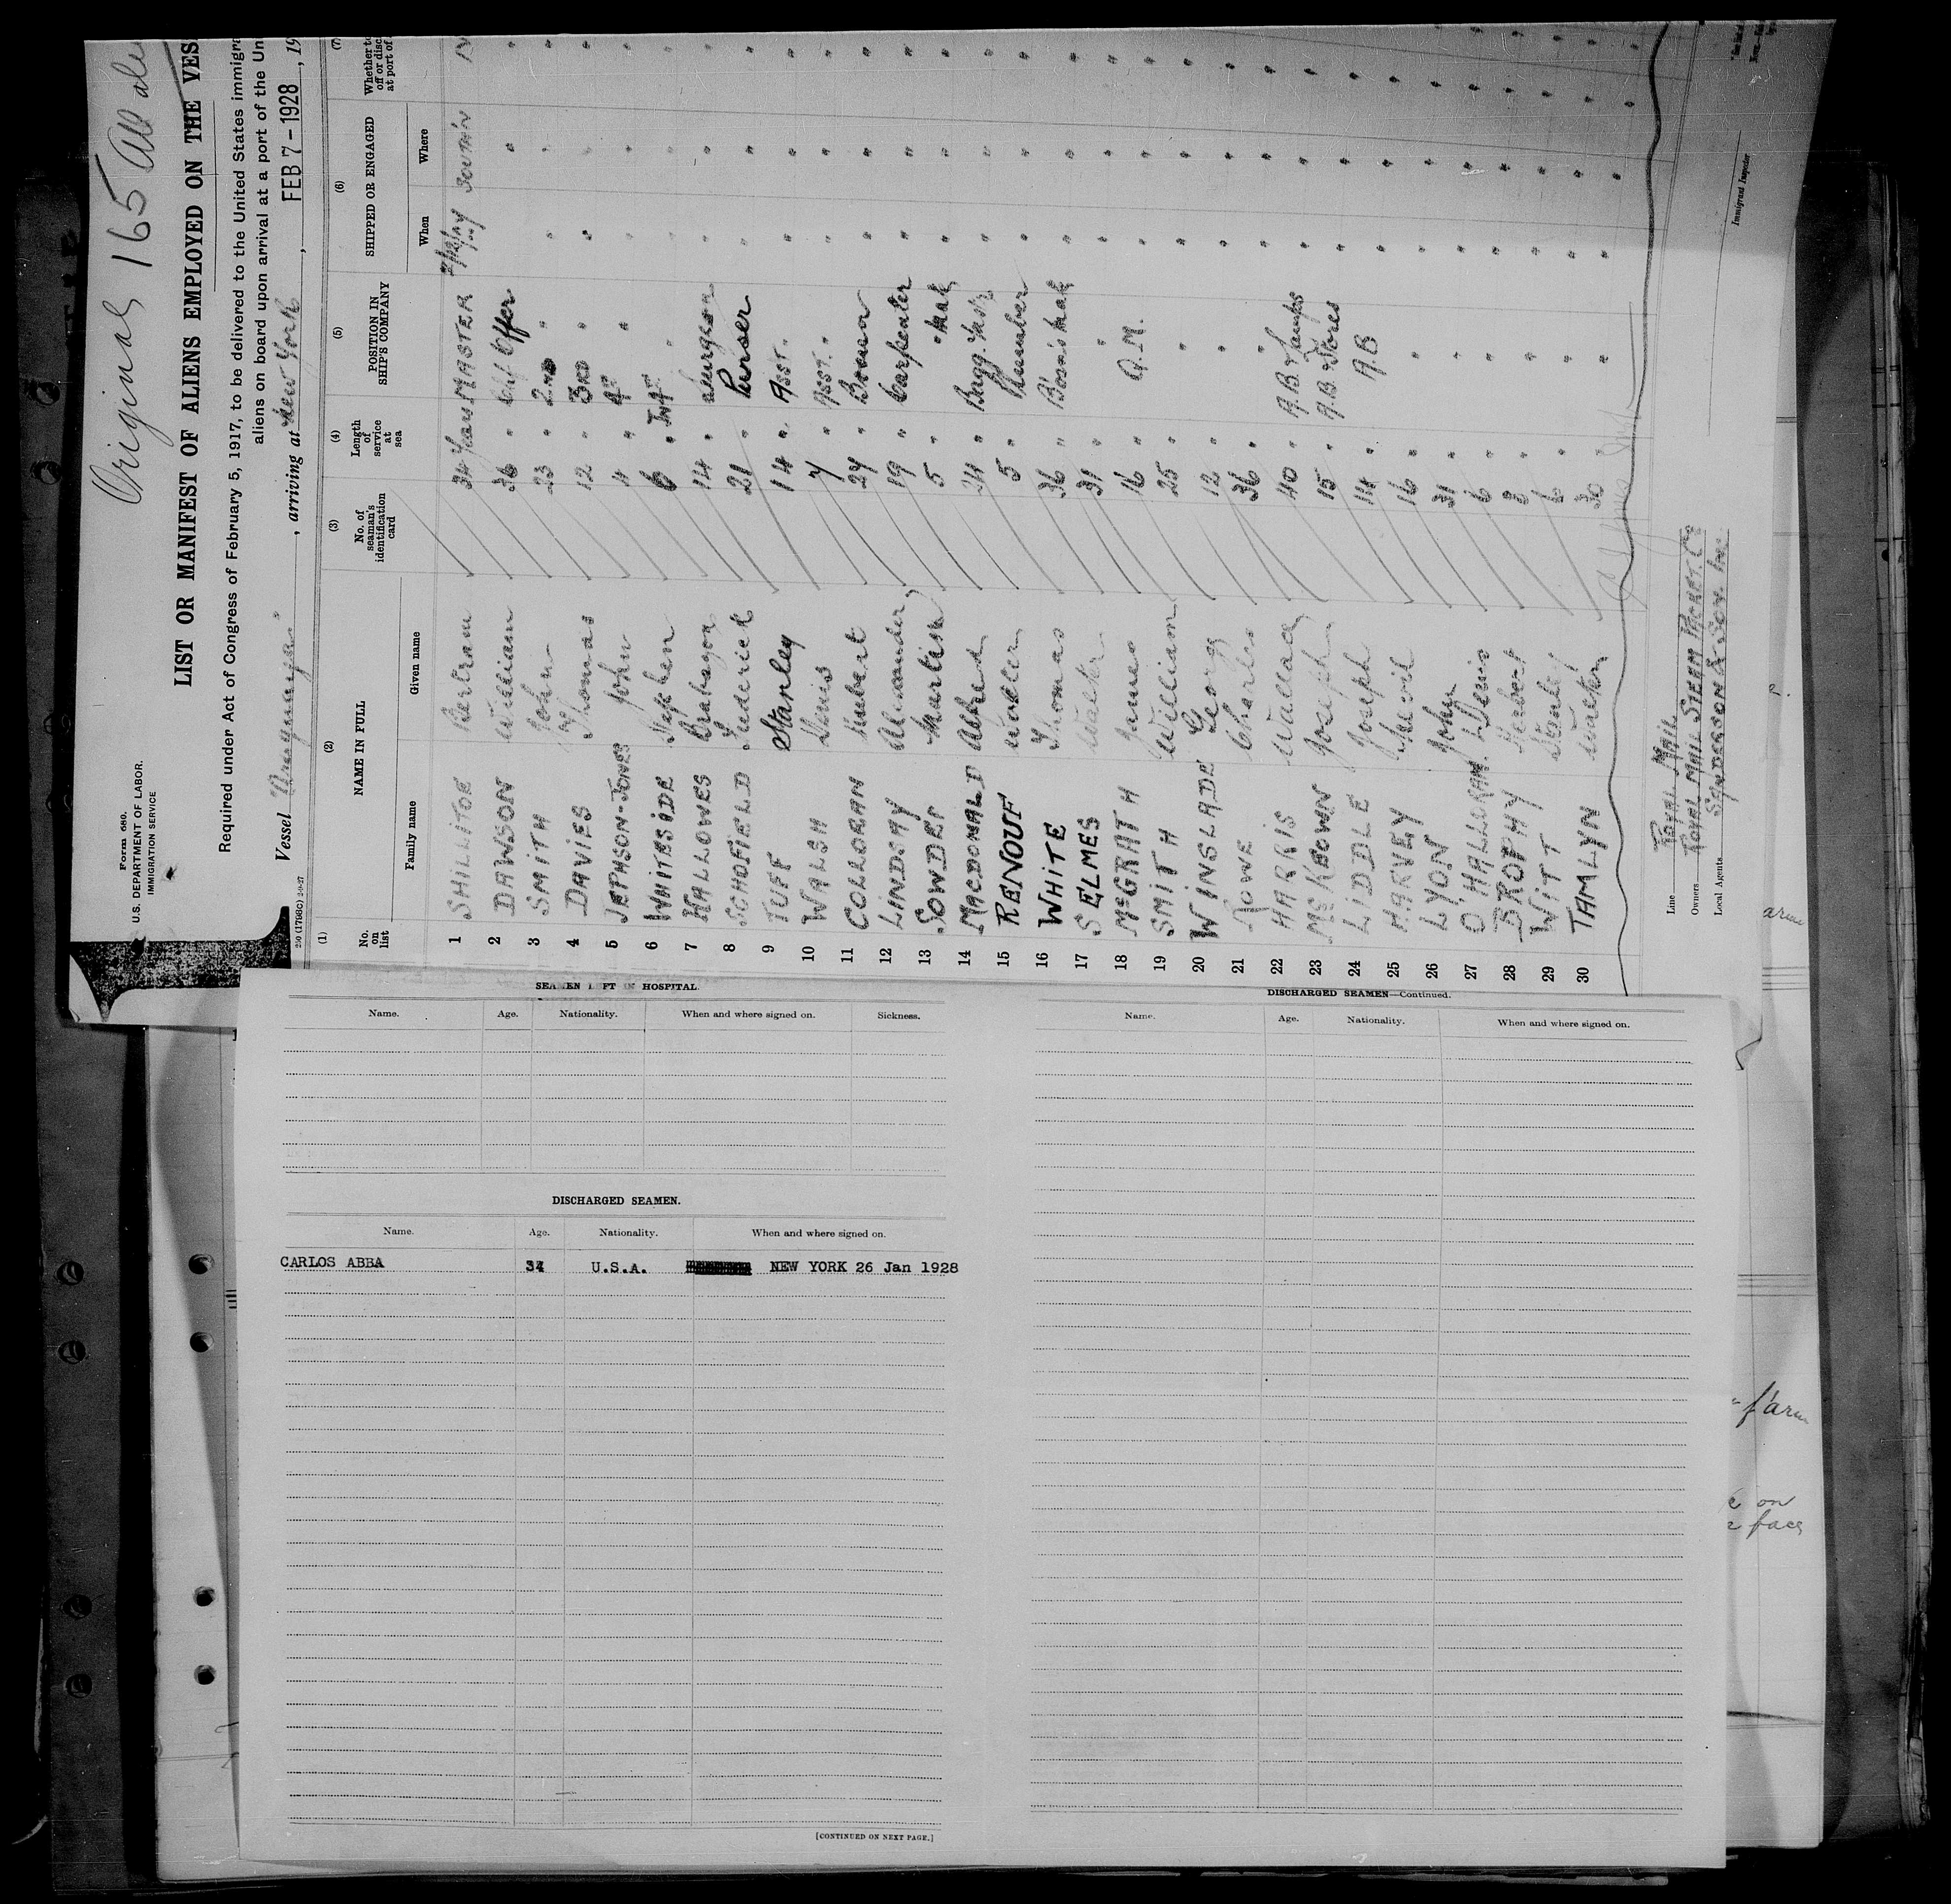 Original 165 All
Form 680.
U.S. DEPARTMENT OF LABOR.
IMMIGRATION SERVICE
LIST OR MANIFEST OF ALIENS EMPLOYED ON THE VES
Required under Act of Congress of February 5, 1917, to be delivered to the United States immigra
aliens on board upon arrival at a port of the Un
Vessel , arriving at New York , FEB 7 - 1928 , 19
(1) (2) (3) (4) (5) (6) (7)
No. on list NAME IN FULL No. of seaman's identification card Length of service at sea POSITION IN SHIP'S COMPANY SHIPPED OR ENGAGED Whether to off or disc at port of
Family name Given name When Where
1 SHILLITOE Bertram 34 Years MASTER
2 DAWSON William 36 " Chf Offer " "
3 SMITH John 23 " 2ND " " "
4 DAVIES Thomas 12 " 3RD " " "
5 JEPHSON-JONES John 4 " 4TH " " "
6 WHITESIDE Stephen 6 " " " "
7 HALLOWES Brabazon 14 " Surgeon " "
8 SCHOFIELD Frederick 21 " Purser " "
9 TUFF Stanley 14 " ASST. " " "
10 WALSH Denis 7 " ASST. " " "
11 COLLORAN Hubert 27 " Bosun " "
12 LINDSAY Alexander 19 " Carpenter " "
13 SOWDEN 5 " " Mate " "
14 MACDONALD Alfred 34 " Bagg. Mastr " "
15 RENOUF Walter 5 " Plumber " "
16 WHITE Thomas 36 " Bosn's Mate " "
17 SELMES Walter 31 " " " "
18 McGRATH James 16 " Q.M. " "
19 SMITH William 25 " " " "
20 WINSLADE George 12 " " " "
21 ROWE Charles 36 " " " "
22 HARRIS Wallace 40 " A.B. & Lamps " "
23 McKEOWN Joseph 15 " A.B. Stores " "
24 LIDDLE Joseph 14 " A.B " "
25 HARVEY 16 " " " "
26 LYON John 31 " " " "
27 O'HALLORAN Denis 6 " " " "
28 BROPHY Herbert 8 " " " "
29 WITT 6 " " " "
30 TAMLYN Walter 30 " " " "
Line ROYAL MAIL
Owners ROYAL MAIL STEAM PACKET. Co
Local Agents SANDERSON & SON. INC.
Immigrant Inspector
SEAMEN LEFT IN HOSPITAL.
Name. Age. Nationality. When and where signed on. Sickness.
DISCHARGED SEAMEN.
Name. Age. Nationality. When and where signed on.
CARLOS ABBA 34 U.S.A. NEW YORK 26 Jan 1928
[CONTINUED ON NEXT PAGE.]
DISCHARGED SEAMEN—Continued.
Name. Age. Nationality. When and where signed on.
on
face